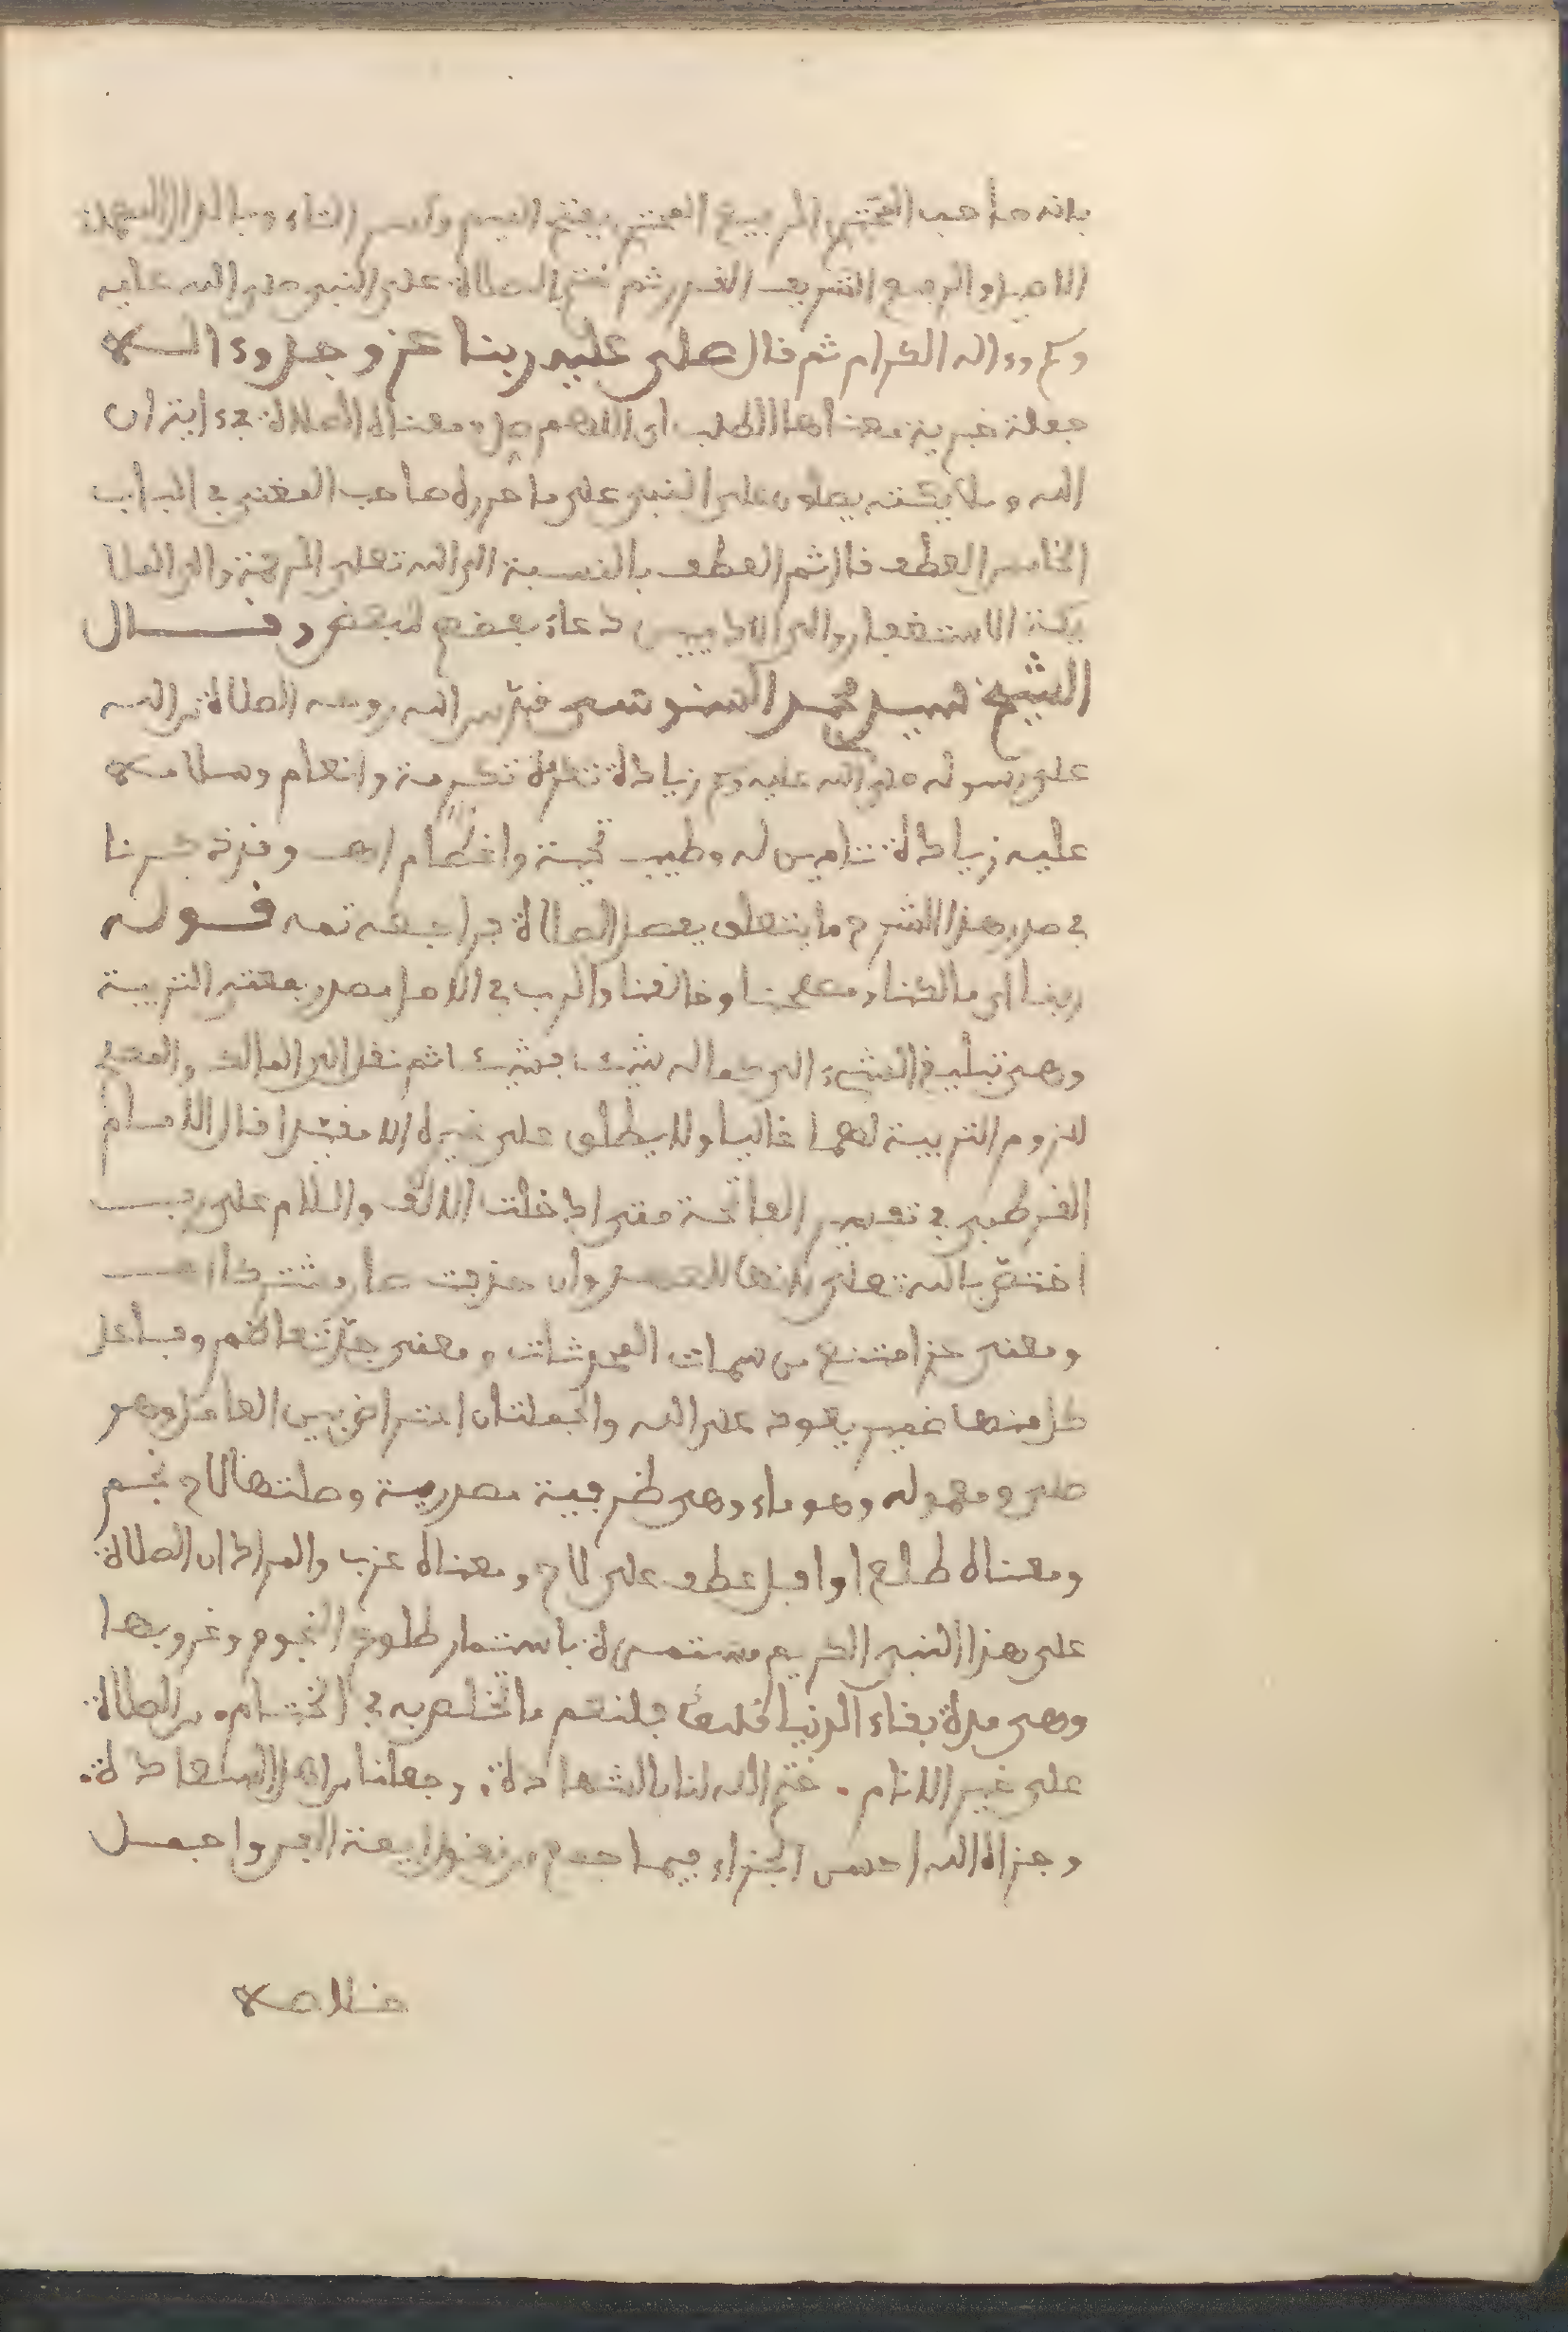 بانه صاحب المحتد الرفيع المحتد بفتح الميم وكسر التاء وبالدال المهملة
الاصيل والرفيع الشريف القدر ثم ختم بالصلاة على النبي صلى الله عليه
وسلم وءاله الكرام ثم قال صلى عليه ربنا عز وجل وءالـــه
جملة خبرية معناها الطلب اي اللهم صل ومعناه الصلاة في ءاية ان
الله وملائكته يصلون على النبي على ما حرره صاحب المغني في الباب
الخامس العطف قال ثم العطف بالنسبة الى الله تعلى الرحمة والى الملا
ئكة الاستغفار والى الادميين دعاء بعضهم لبعض وقــــال
الشيخ سيد محمد السنوسي قدس الله روحه الصلاة من الله
على رسوله صلى الله عليه وسلم زيادة تكرمة وانعام وسلامه
عليه زيادة تامين له وطيب تحية واعظام اهـ وقد قدمنا
في صدر هذا الشرح ما يتعلق بفضل الصلاة فراجعه ثمه قــوله
ربنا اي مالكنا ومصلحنا وخالقنا والرب في الاصل مصدر بمعنى التربية
وهي تبليغ الشيء الى كماله شيئا فشيئا ثم نقل الى المالك والمصلح
للزوم التربية لهما غالبا ولا يطلق على غيره الا مقيدا قال الامام
القرطبي في تفسير الفاتحة متى ادخلت الالف واللام على رب
اختص بالله تعلى لانها للعهد وان حذفت صار مشتركا اهـ
ومعنى عز امتنع من سمات المحدثات ومعنى جل تعاظم وفاعل
كل منهما ضمير يعود على الله والجملتان اعتراض بين العامل وهو
صلى ومعموله وهو ماء وهي ظرفية مصدرية وصلتها لاح نجم
ومعناه طلع او افل عطف على لاح ومعناه غرب والمراد ان الصلاة
على هذا النبي الكريم مستمرة باستمرار طلوع النجوم وغروبها
وهي مدة بقاء الدنيا فلنعم ما تخلص به في الختام. من الصلاة
على خير الانام. ختم الله لنا بالشهادة. وجعلنا من اهل السعادة.
وجزاه الله احسن الجزاء فيما جمع من الفوائد واجمل
خلاصه